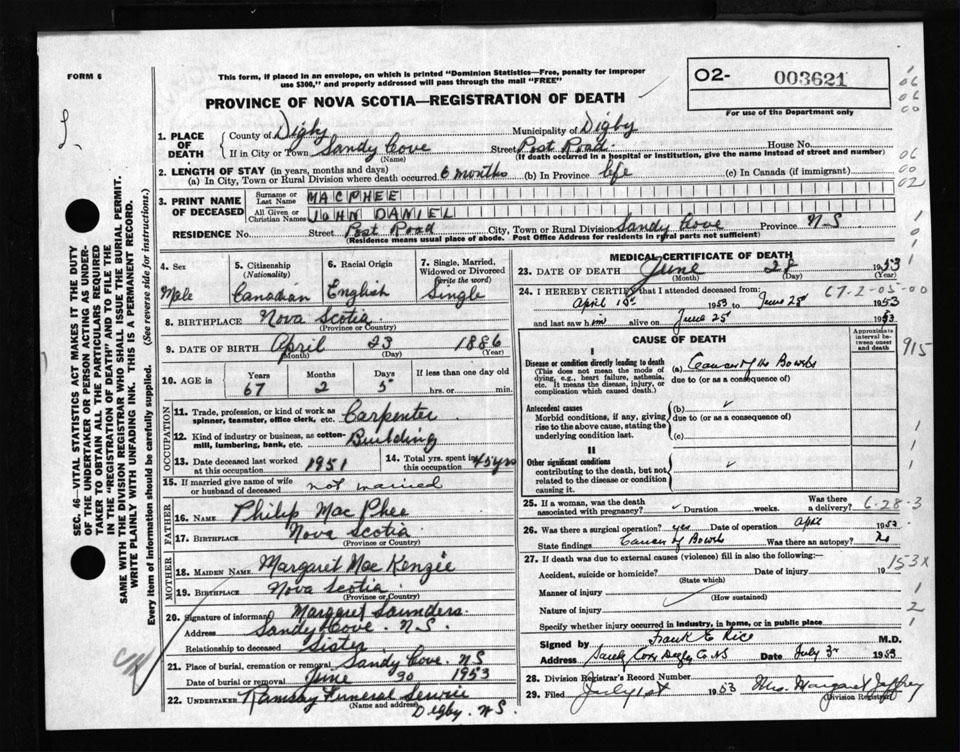 FORM 6
This form, if placed in an envelope, on which is printed "Dominion Statistics—Free, penalty for improper
use $300," and properly addressed will pass through the mail "FREE"
O2- 003621
For use of the Department only
PROVINCE OF NOVA SCOTIA—REGISTRATION OF DEATH
1. PLACE OF DEATH
County of Digby Municipality of Digby
If in City or Town Sandy Cove (Name) Street Post Road House No.
(If death occurred in a hospital or institution, give the name instead of street and number)
2. LENGTH OF STAY (in years, months and days)
(a) In City, Town or Rural Division where death occurred 6 months (b) In Province life (c) In Canada (if immigrant)
3. PRINT NAME OF DECEASED
Surname or Last Name MACPHEE
All Given or Christian Names JOHN DANIEL
RESIDENCE No. Street Post Road City, Town or Rural Division Sandy Cove Province N S
(Residence means usual place of abode. Post Office Address for residents in rural parts not sufficient)
SEC. 46—VITAL STATISTICS ACT MAKES IT THE DUTY
OF THE UNDERTAKER OR PERSON ACTING AS UNDER-
TAKER TO OBTAIN ALL THE PARTICULARS REQUIRED
IN THE "REGISTRATION OF DEATH" AND TO FILE THE
SAME WITH THE DIVISION REGISTRAR WHO SHALL ISSUE THE BURIAL PERMIT.
WRITE PLAINLY WITH UNFADING INK. THIS IS A PERMANENT RECORD.
Every item of information should be carefully supplied. (See reverse side for instructions.)
4. Sex Male
5. Citizenship (Nationality) Canadian
6. Racial Origin English
7. Single, Married, Widowed or Divorced (write the word) Single
8. BIRTHPLACE Nova Scotia
(Province or Country)
9. DATE OF BIRTH April 23 1886
(Month) (Day) (Year)
10. AGE in Years 67 Months 2 Days 5 If less than one day old hrs. or min.
OCCUPATION
11. Trade, profession, or kind of work as spinner, teamster, office clerk, etc. Carpenter
12. Kind of industry or business, as cotton-mill, lumbering, bank, etc. Building
13. Date deceased last worked at this occupation 1951
14. Total yrs. spent in this occupation 45 yrs
15. If married give name of wife or husband of deceased not married
FATHER
16. NAME Philip Mac Phee
17. BIRTHPLACE Nova Scotia
(Province or Country)
MOTHER
18. MAIDEN NAME Margaret Mac Kenzie
19. BIRTHPLACE Nova Scotia
(Province or Country)
20. Signature of informant Margaret Saunders
Address Sandy Cove. N.S.
Relationship to deceased Sister
21. Place of burial, cremation or removal Sandy Cove. NS
Date of burial or removal June 30 1953
22. UNDERTAKER Ramsay Funeral Service
(Name and address) Digby. N.S.
MEDICAL CERTIFICATE OF DEATH
23. DATE OF DEATH June 28 1953
(Month) (Day)
24. I HEREBY CERTIFY that I attended deceased from:
67-2-05-00
April 19th 1953 to June 28th 1953
and last saw him alive on June 28th 1953
CAUSE OF DEATH
Approximate interval between onset and death
915
I
Disease or condition directly leading to death
(This does not mean the mode of dying, e.g., heart failure, asthenia, etc. It means the disease, injury, or complication which caused death.)
(a) Cancer of the Bowels
due to (or as a consequence of)
Antecedent causes
Morbid conditions, if any, giving rise to the above cause, stating the underlying condition last.
(b)
due to (or as a consequence of)
(c)
II
Other significant conditions
contributing to the death, but not related to the disease or condition causing it.
25. If a woman, was the death associated with pregnancy? Duration weeks. Was there a delivery?
6-28-3
26. Was there a surgical operation? yes Date of operation April 1953
State findings Cancer of Bowels Was there an autopsy? No
27. If death was due to external causes (violence) fill in also the following:—
Accident, suicide or homicide? Date of injury 19
(State which)
153X
Manner of injury
(How sustained)
Nature of injury
Specify whether injury occurred in industry, in home, or in public place
Signed by Frank E Rice M.D.
Address Sandy Cove Digby Co. NS Date July 3rd 1953
28. Division Registrar's Record Number
29. Filed July 1st 1953 Mrs. Margaret Jeffrey
Division Registrar